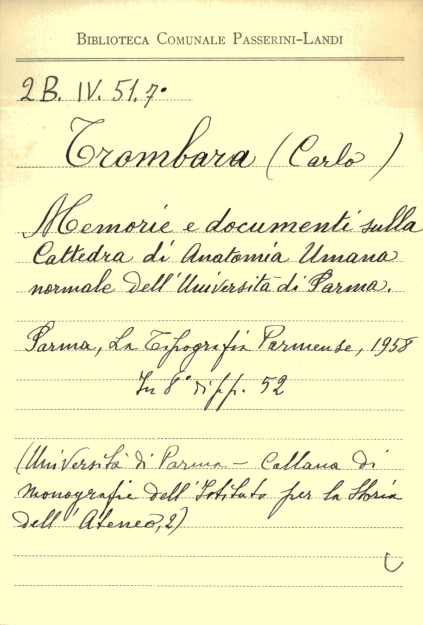 BIBLIOTECA COMUNALE PASSERINI-LANDI
2B. IV. 51.7.
Trombara (Carlo)
Memorie e documenti sulla
Cattedra di Anatomia Umana
normale dell'Università di Parma.
Parma, La Tipografia Parmense, 1958
In 8° di pp. 52
(Università di Parma - Collana di
monografie dell'Istituto per la Storia
dell'Ateneo, 2)